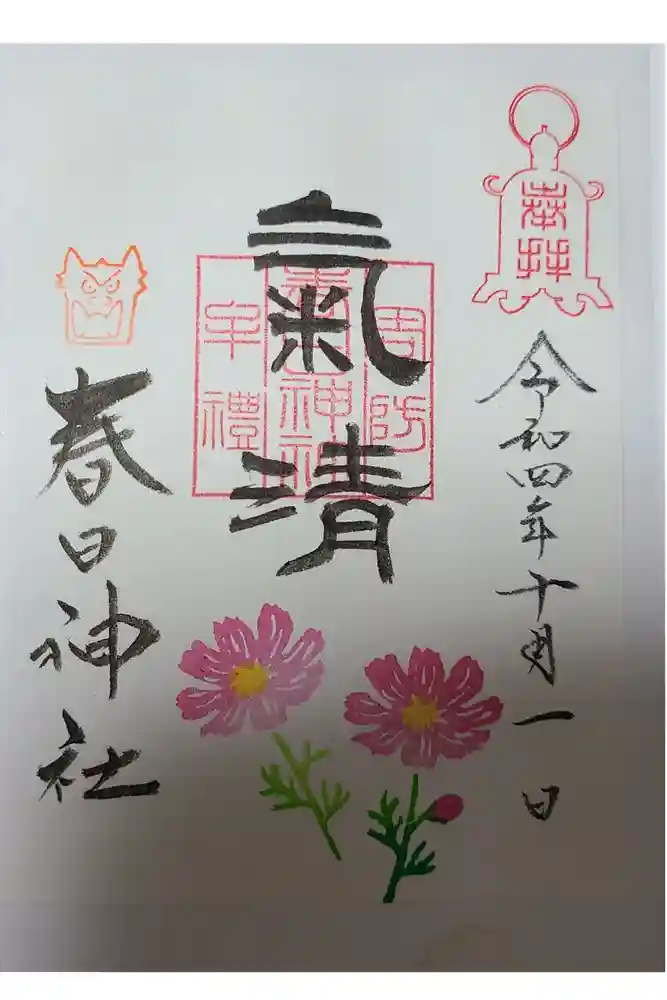 奉拝
令和四年十月一日
氣清
周防
春日神社
牟禮
春日神社